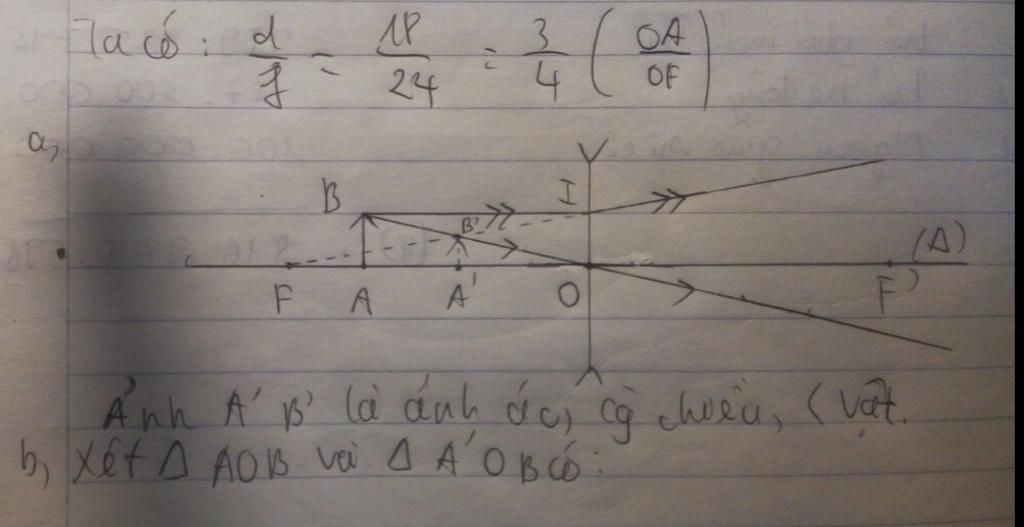 Ta có: d/f = 18/24 = 3/4 (OA/OF)
a,
B I
B'
(Δ)
F A A' O F'
Ảnh A'B' là ảnh ảo, cg chiều, < vật.
b, Xét Δ AOB và Δ A'OB có: